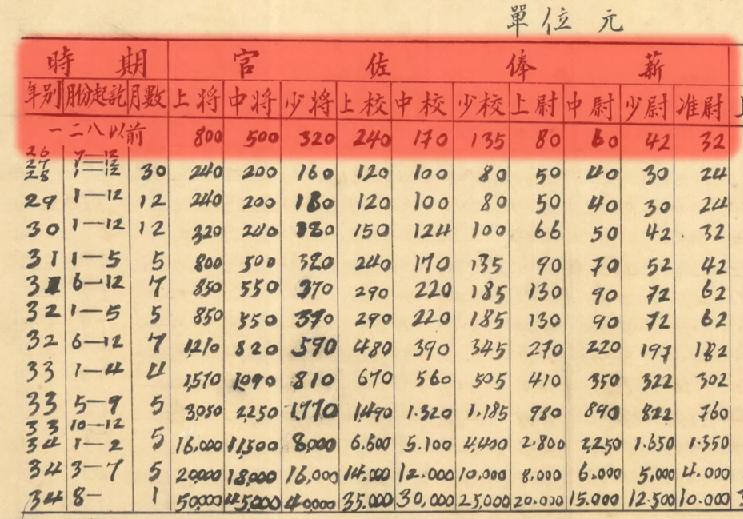 單位元
時期 官佐俸薪
年別 月份起訖 月數 上将 中将 少将 上校 中校 少校 上尉 中尉 少尉 准尉
一二八以前 800 500 320 240 170 135 80 60 42 32
26 7—12
27 1—12
28 1—12 30 240 200 160 120 100 80 50 40 30 24
29 1—12 12 240 200 180 120 100 80 50 40 30 24
30 1—12 12 320 240 180 150 124 100 66 50 42 32
31 1—5 5 800 500 320 240 170 135 90 70 52 42
31 6—12 7 850 550 370 290 220 185 130 90 72 62
32 1—5 5 850 550 370 290 220 185 130 90 72 62
32 6—12 7 1,210 820 590 480 390 345 270 220 197 182
33 1—4 4 1,570 1,090 810 670 560 505 410 350 322 302
33 5—9 5 3,050 2,250 1,770 1,490 1.320 1.185 980 890 822 760
33 10—12
34 1—2 5 16,000 11,500 8,000 6.600 5.100 4,400 2.800 2,250 1.650 1.350
34 3—7 5 20,000 18,000 16,000 14.000 12.000 10,000 8.000 6.000 5,000 4.000
34 8— 1 50,000 45,000 40,000 35.000 30,000 25,000 20.000 15.000 12.500 10.000